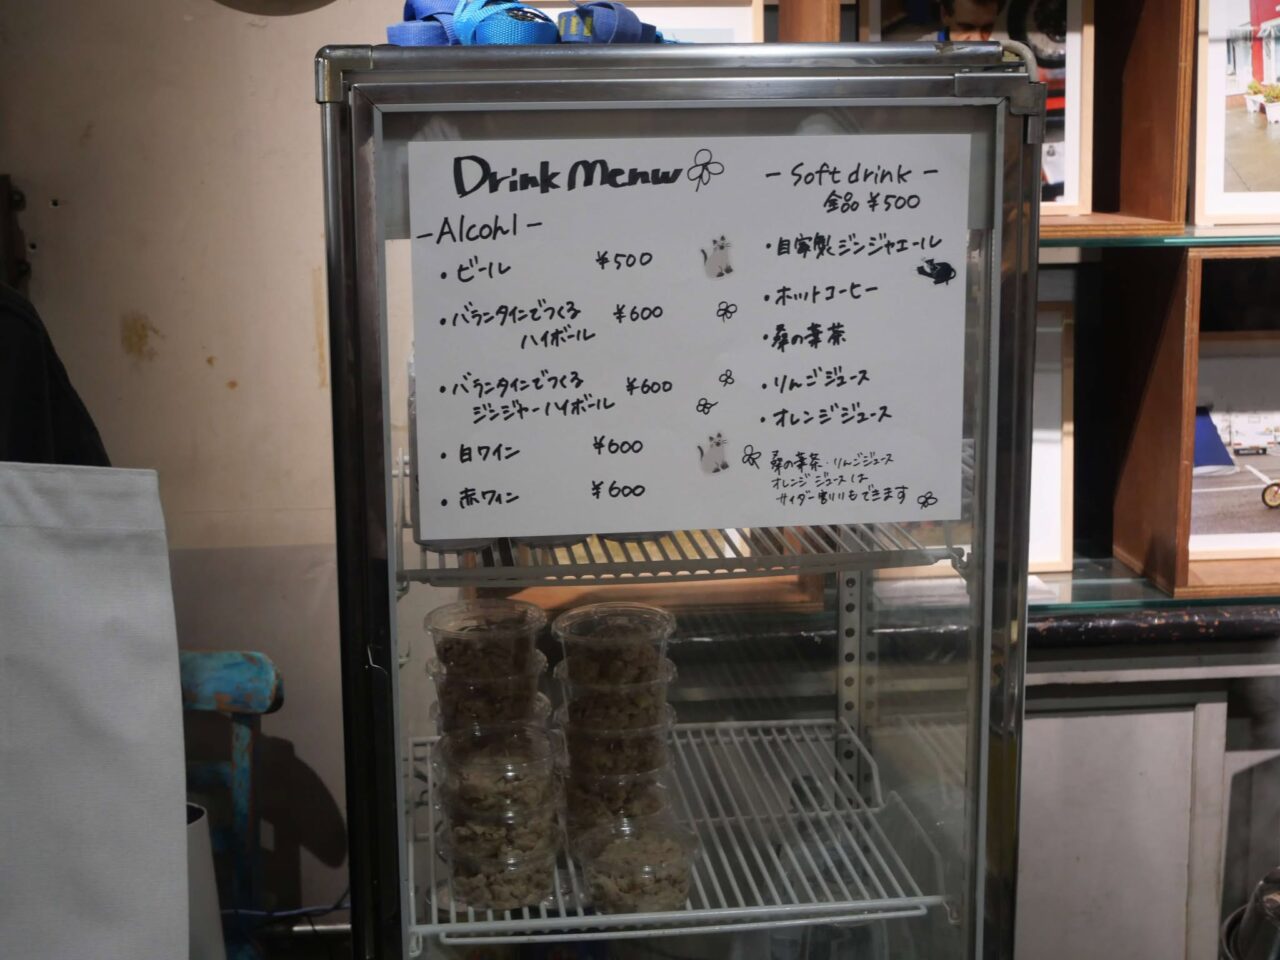 Drink Menu
-Alcohl-
・ビール ¥500
・バランタインでつくる ¥600
ハイボール
・バランタインでつくる ¥600
ジンジャーハイボール
・白ワイン ¥600
・赤ワイン ¥600
- Soft drink -
全品 ¥500
・自家製ジンジャエール
・ホットコーヒー
・桑の葉茶
・りんごジュース
・オレンジジュース
桑の葉茶・りんごジュース
オレンジジュースは
サイダー割りもできます